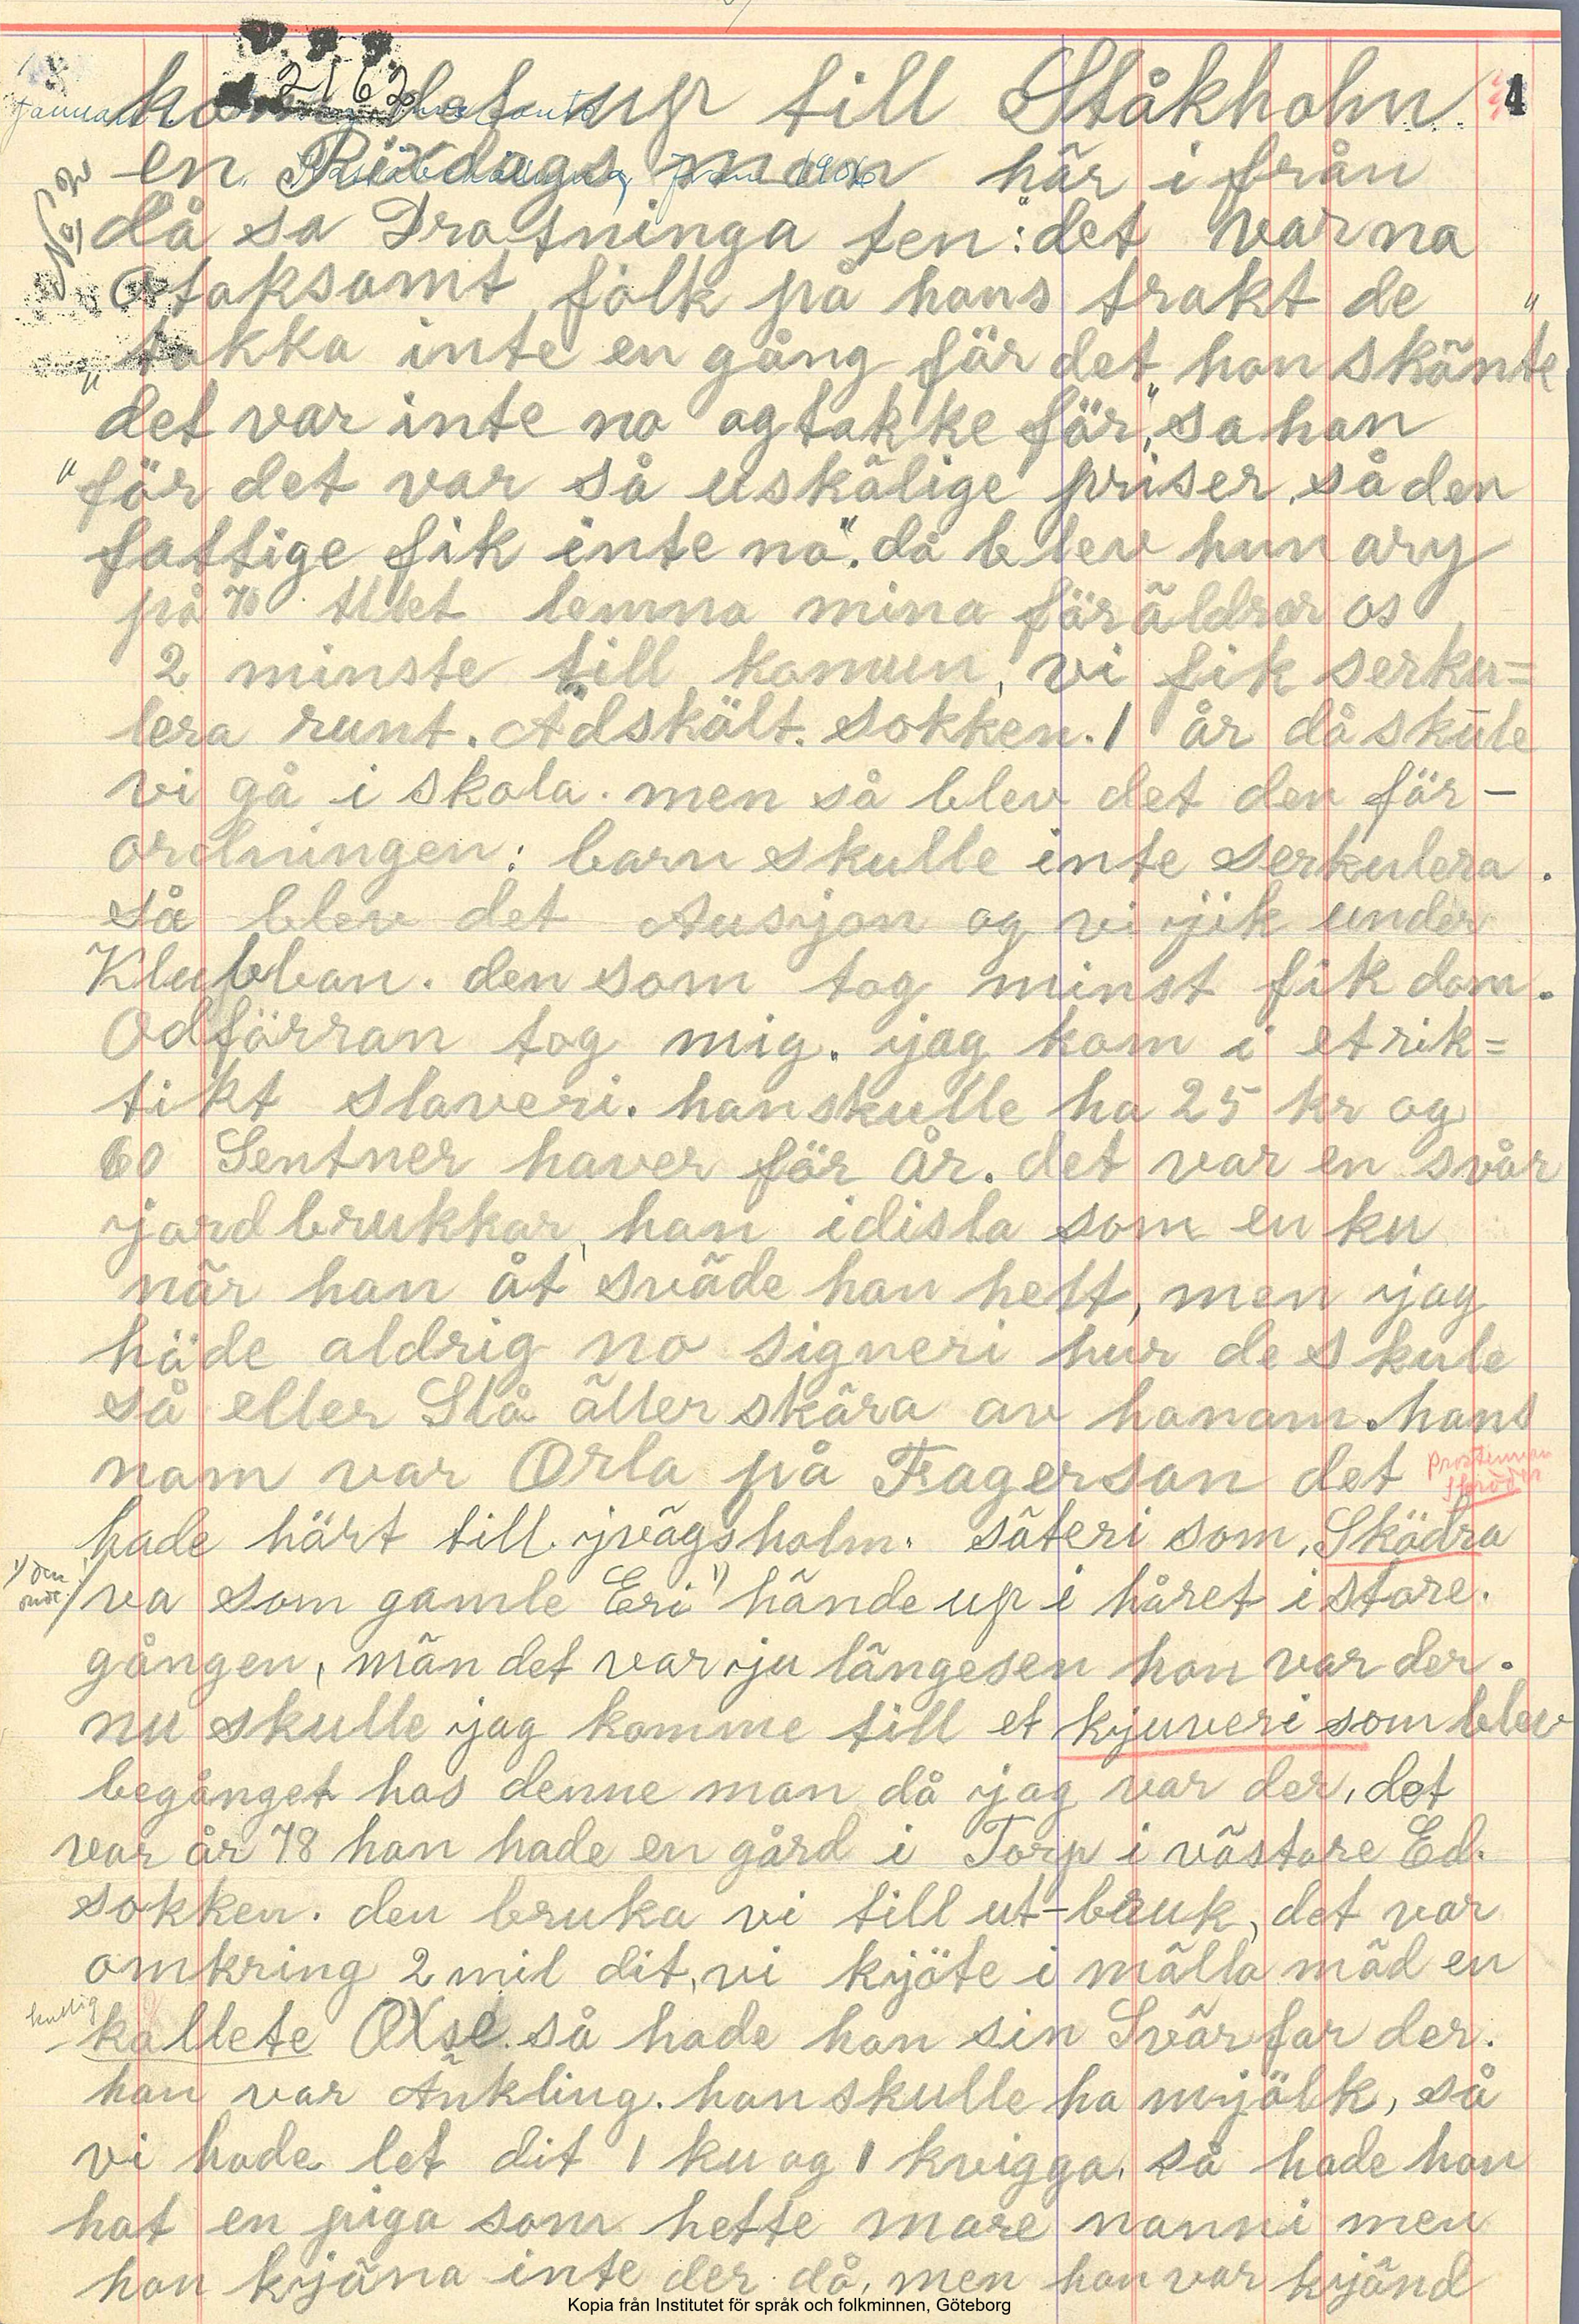 2162
kom det up till Ståkholm 4
en Rixdags man här i från
då sa Dratninga ten: "det var na
otaksamt folk på hans trakt de
takka inte en gång får det han skänte"
"det var inte no og takke får", sa han
"får det var så uskälige priser, så den
fattige fik inte no". då blev hun arg
på 70 tllet lemna mina föräldrar os
2 minste till komun, vi fik serku=
lera runt. Ädskält. sokken. 1 år då skule
vi gå i skola. men så blev det den får-
ordningen: barn skulle inte serkulera.
så blev det Ausjon og vi jik under
Klubban. den som tog minst fik dom.
Odfärran tog mig. jag kom i et rik=
tikt slaveri. han skulle ha 25 kr og
60 Sentner haver får år. det var en svår
jardbrukkar, han idisla som en ku
når han åt sväde han hett, men jag
häde aldrig no signeri hur de skule
så eller Slå äller skära av honom. hans
nam var Orla på Fagersan det
hade härt till jvägsholm. säteri som, Skädra
va som gamle Eri 1) hände up i håret i store.
gången, män det var ju längesen han var der.
nu skulle jag komme till et kjuveri som blev
begånget hos denne man då jag var der, det
var år 78 han hade en gård i Torp i västare Ed.
sokken. den bruka vi till ut-bruk, det var
omkring 2 mil dit, vi kjöte i mälla mäd en
kullig
kallete OXse så hade han sin Svärfar der.
han var Änkling. han skulle ha mjölk, så
vi hade let dit 1 ku og 1 kvigga, så hade han
hat en piga som hette mare nanni men
hon kjäna inte der då, men hon var kjänd
Kopia från Institutet för språk och folkminnen, Göteborg